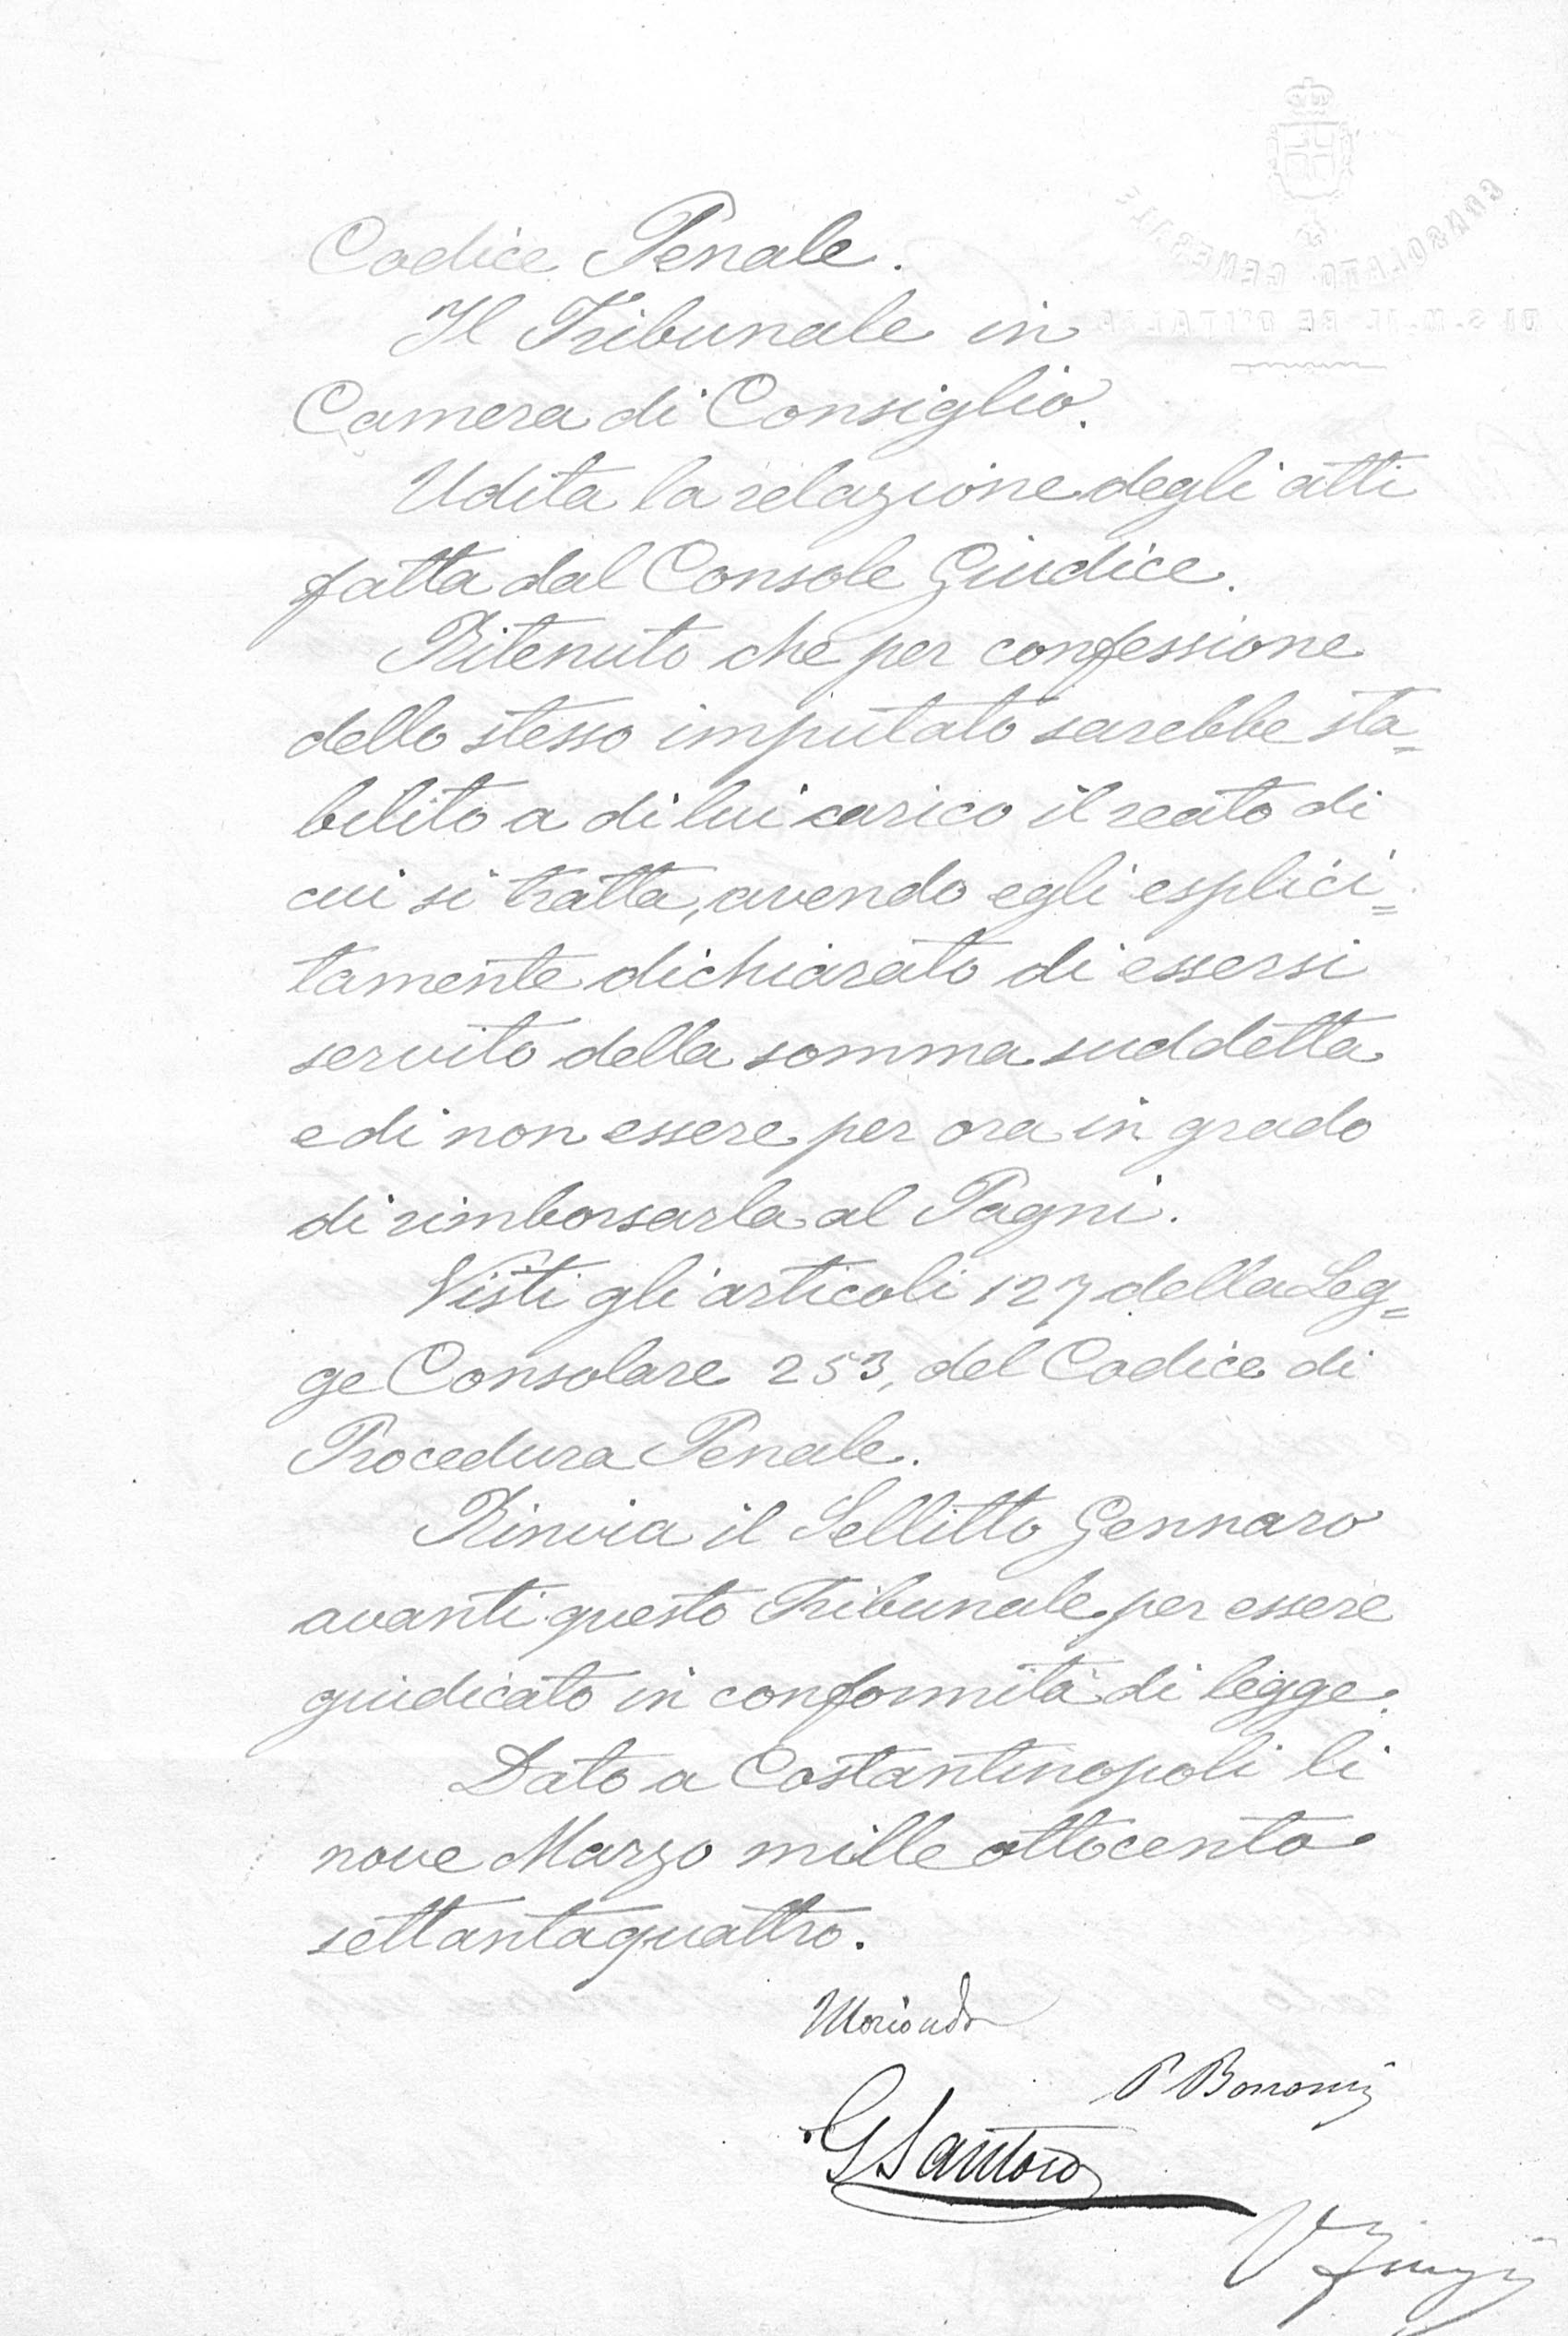 CONSOLATO GENERALE
DI S. M. IL RE D'ITALIA
Codice Penale.
Il Tribunale in
Camera di Consiglio.
Udita la relazione degli atti
fatta dal Console Giudice.
Ritenuto che per confessione
dello stesso imputato sarebbe sta=
bilito a di lui carico il reato di
cui si tratta, avendo egli esplici=
tamente dichiarato di essersi
servito della somma suddetta
e di non essere per ora in grado
di rimborsarla al Pagni.
Visti gli articoli 127 della Leg=
ge Consolare 253, del Codice di
Procedura Penale.
Rinvia il Sellitto Gennaro
avanti questo Tribunale per essere
giudicato in conformità di legge.
Dato a Costantinopoli li
nove Marzo mille ottocento
settantaquattro.
Moriondo
G Santoro